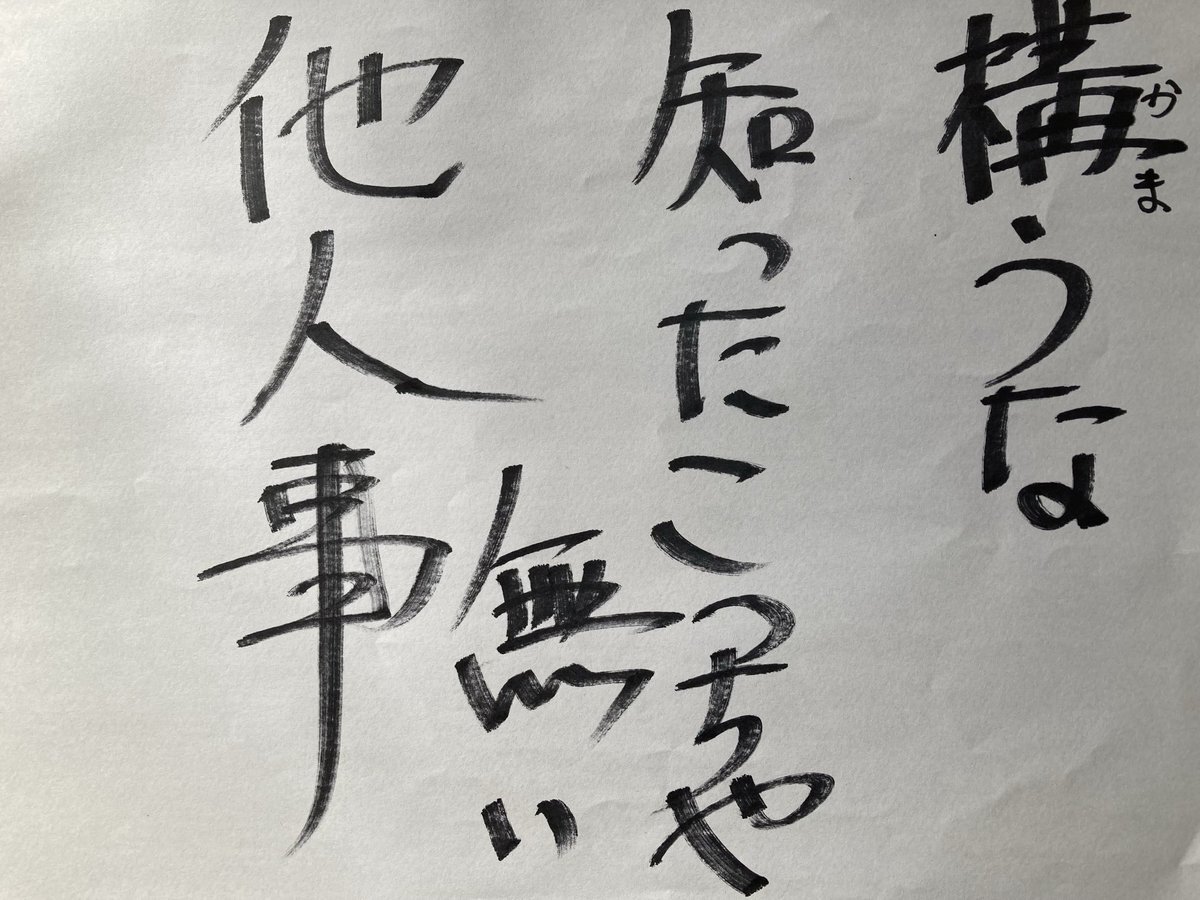 構うな
かま
知ったこっちゃ
無い
他人事